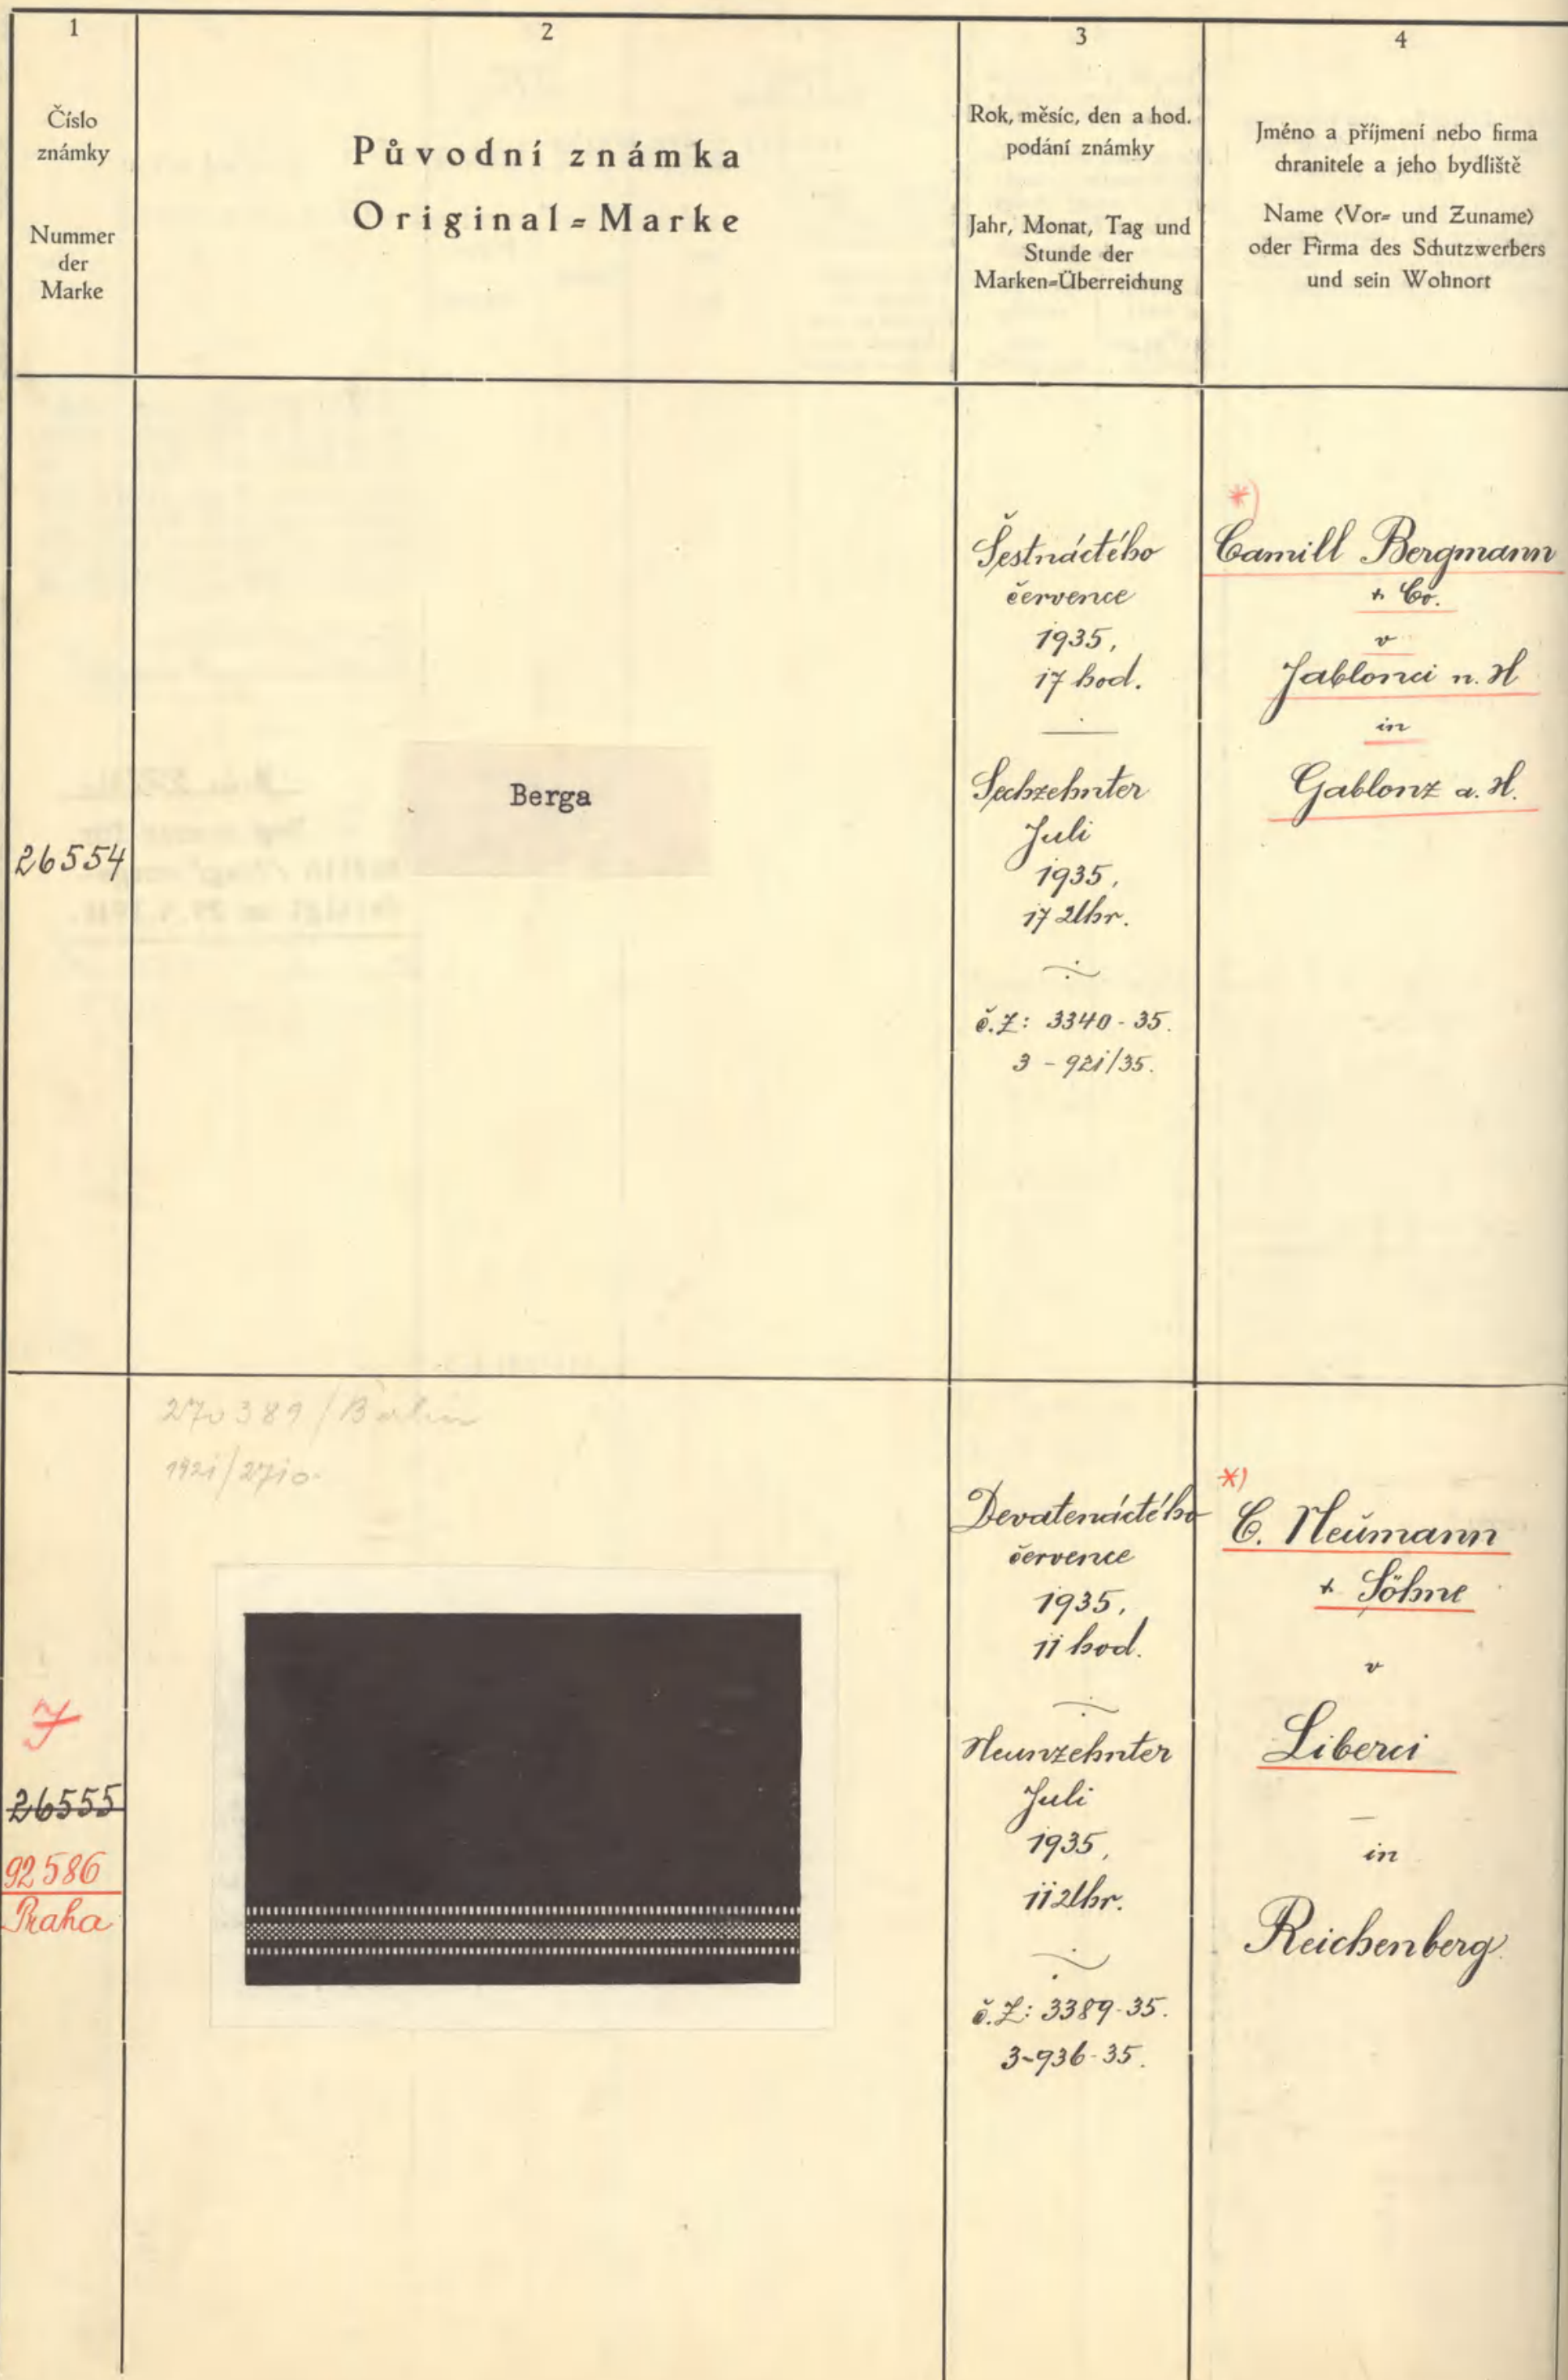 1
Číslo
známky
Nummer
der
Marke
2
Původní známka
Original=Marke
3
Rok, měsíc, den a hod.
podání známky
Jahr, Monat, Tag und
Stunde der
Marken=Überreichung
4
Jméno a příjmení nebo firma
chranitele a jeho bydliště
Name (Vor= und Zuname)
oder Firma des Schutzwerbers
und sein Wohnort
26554
Berga
Šestnáctého
července
1935,
17 hod.
Sechzehnter
Juli
1935,
17 Uhr.
č.Z: 3340-35.
3-921/35.
*)
Camill Bergmann
+ Co.
v
Jablonci n. N
in
Gablonz a. N.
26555
92586
Praha
270389/Berlin
1921/2710.
Devatenáctého
července
1935,
11 hod.
Neunzehnter
Juli
1935,
11 Uhr.
č.Z: 3389-35.
3-936-35.
*)
C. Neumann
+ Söhne
v
Liberci
in
Reichenberg